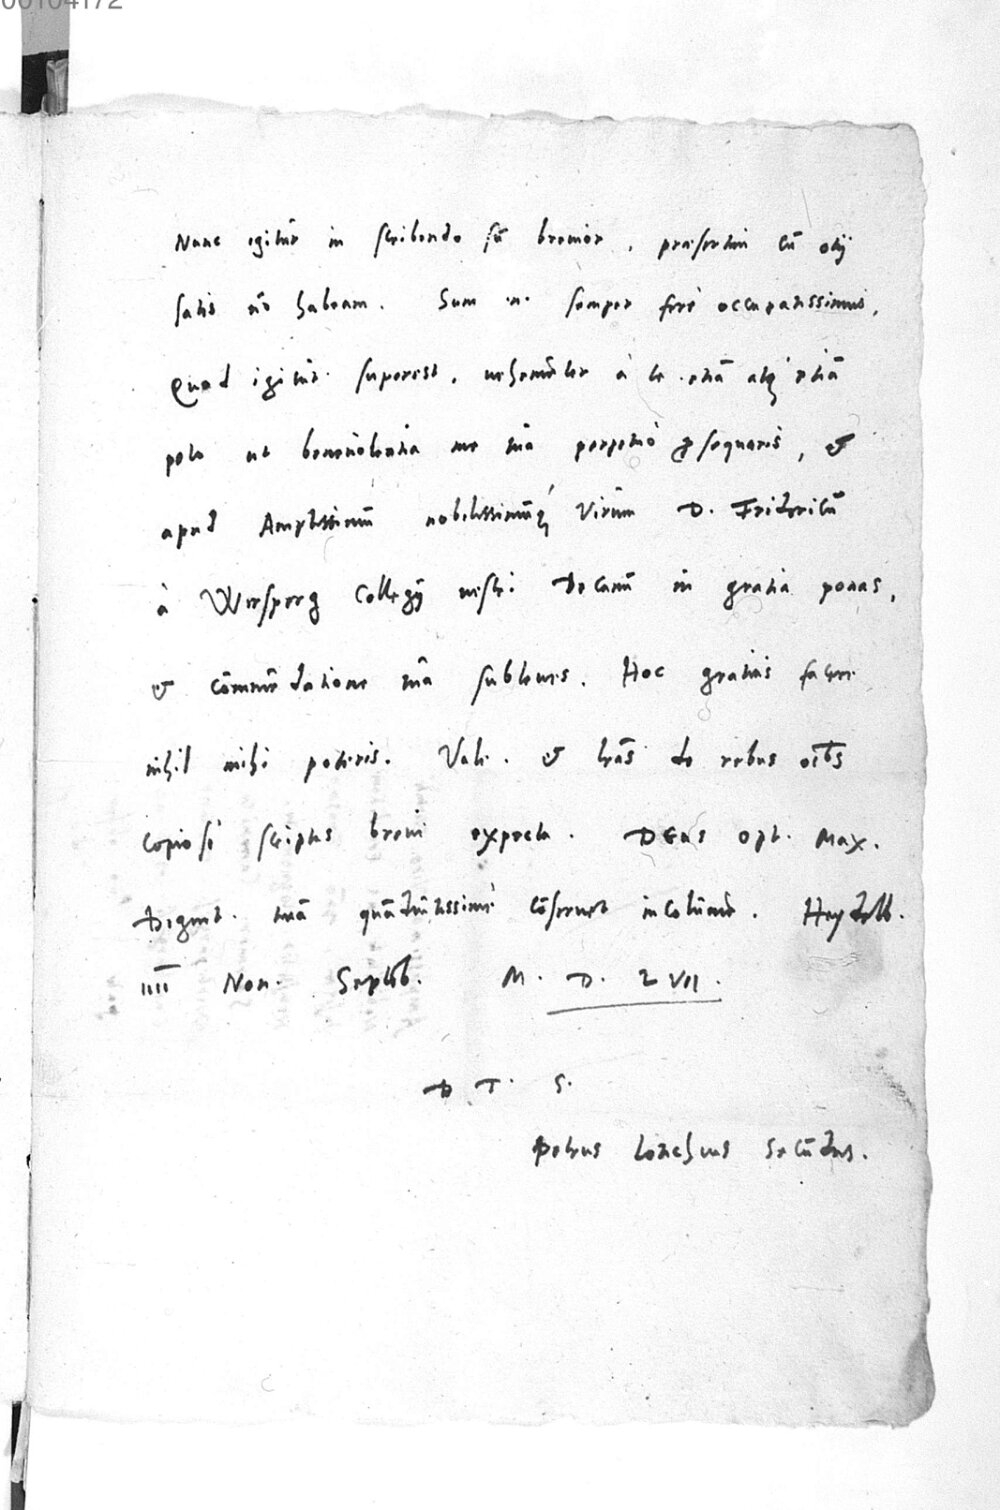 00104172
Nunc igitur in scribendo sū brevior, praesertim cū otij
satis nō habeam. Sum .n. semper ferè occupatissimus.
Quod igitur superest, vehemēter à te etiā atq etiā
peto ut benevolentia me tua perpetuò prosequaris, et
apud Amplissimū nobilissimūq Virum D. Fridericū
à Wirsperg Collegij vestri Decanū in gratia ponas,
et cōmmēdatione tuā subleves. Hoc gratius facere
nihil mihi poteris. Vale. et lrās de rebus oībs
copiosè scriptas brevi expecta. DEus opt. Max.
Dignit. tuā quā diutissimè cōservet incolumē. Heydelb.
IIII Non. Septēb. M. D. LVII.
D T. S.
Petrus Lotichius Secūdus.